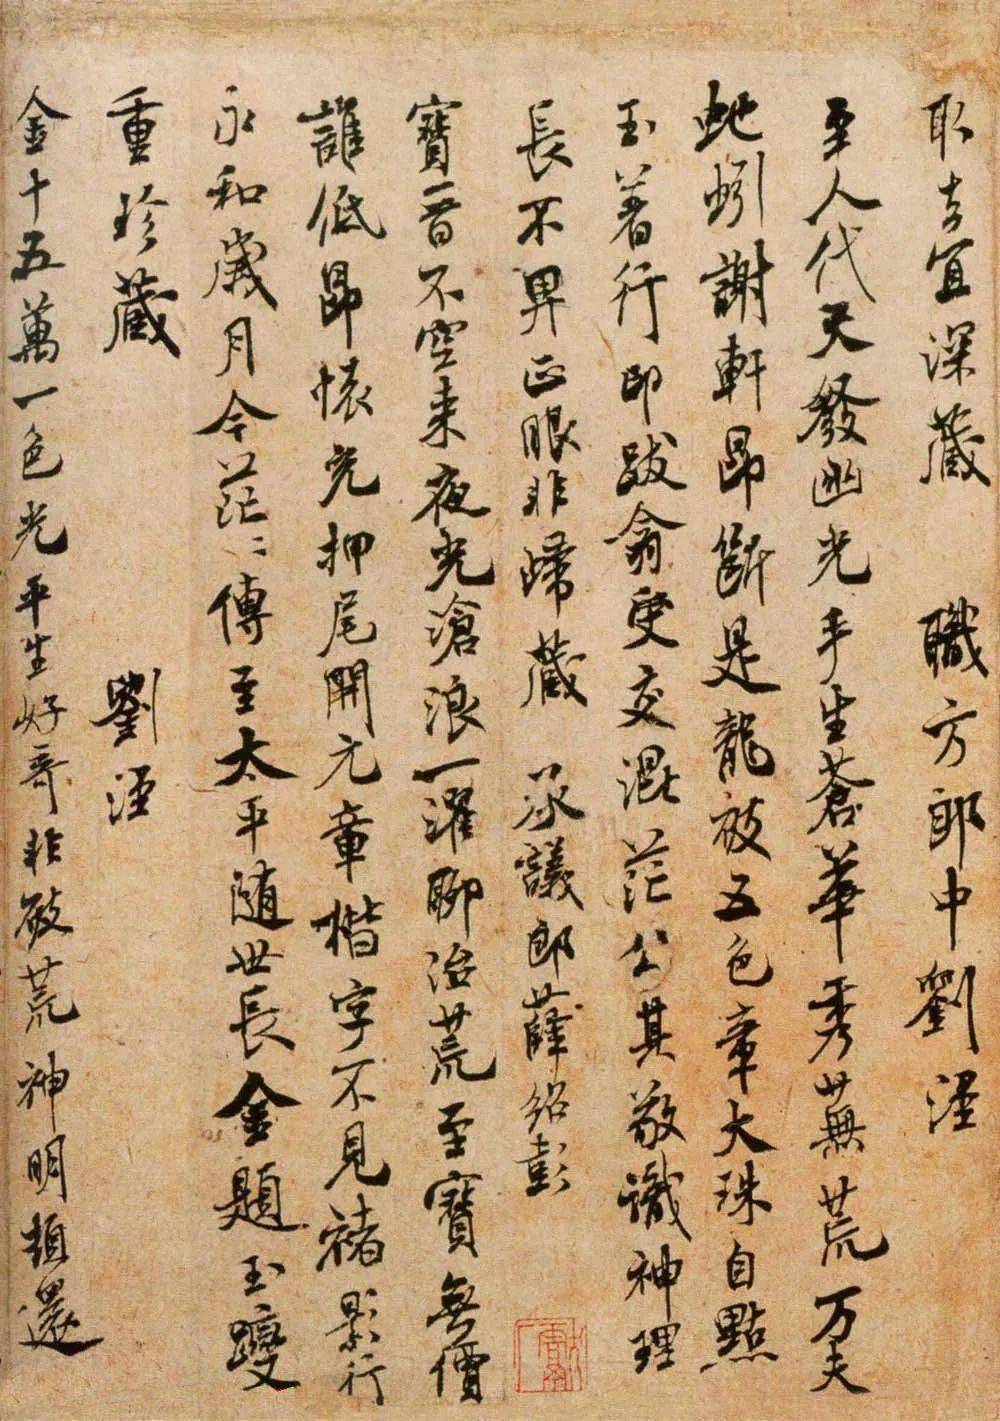 取去宜深藏 職方郎中劉涇
至人代天發幽光手生蒼華秀蕪荒万夫
虵蚓謝軒昂斷是龍被五色章大珠自點
玉著行印跋翕受交混茫公其敬識神理
長不畀正眼非歸藏 承議郎薛紹彭
寶晉不空来夜光滄浪一濯聊治荒至寶無價
誰低昂懷充押尾開元章楷字不見褚影行
永和歲月今茫〻傳至太平随世長金題玉躞
重珍藏 劉涇
金十五萬一色光平生好奇非破荒神明頓還